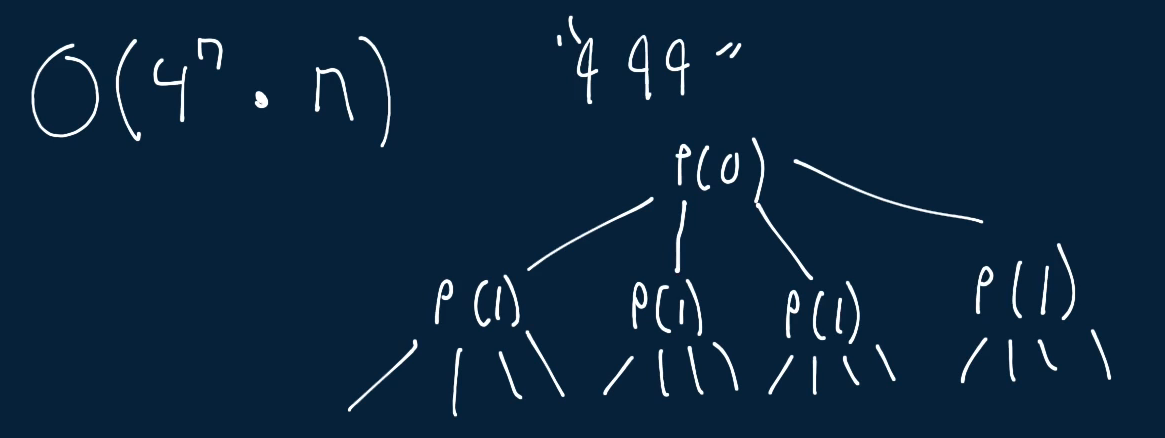 O(4ⁿ · n)
"999"
P(0)
P(1) P(1) P(1) P(1)